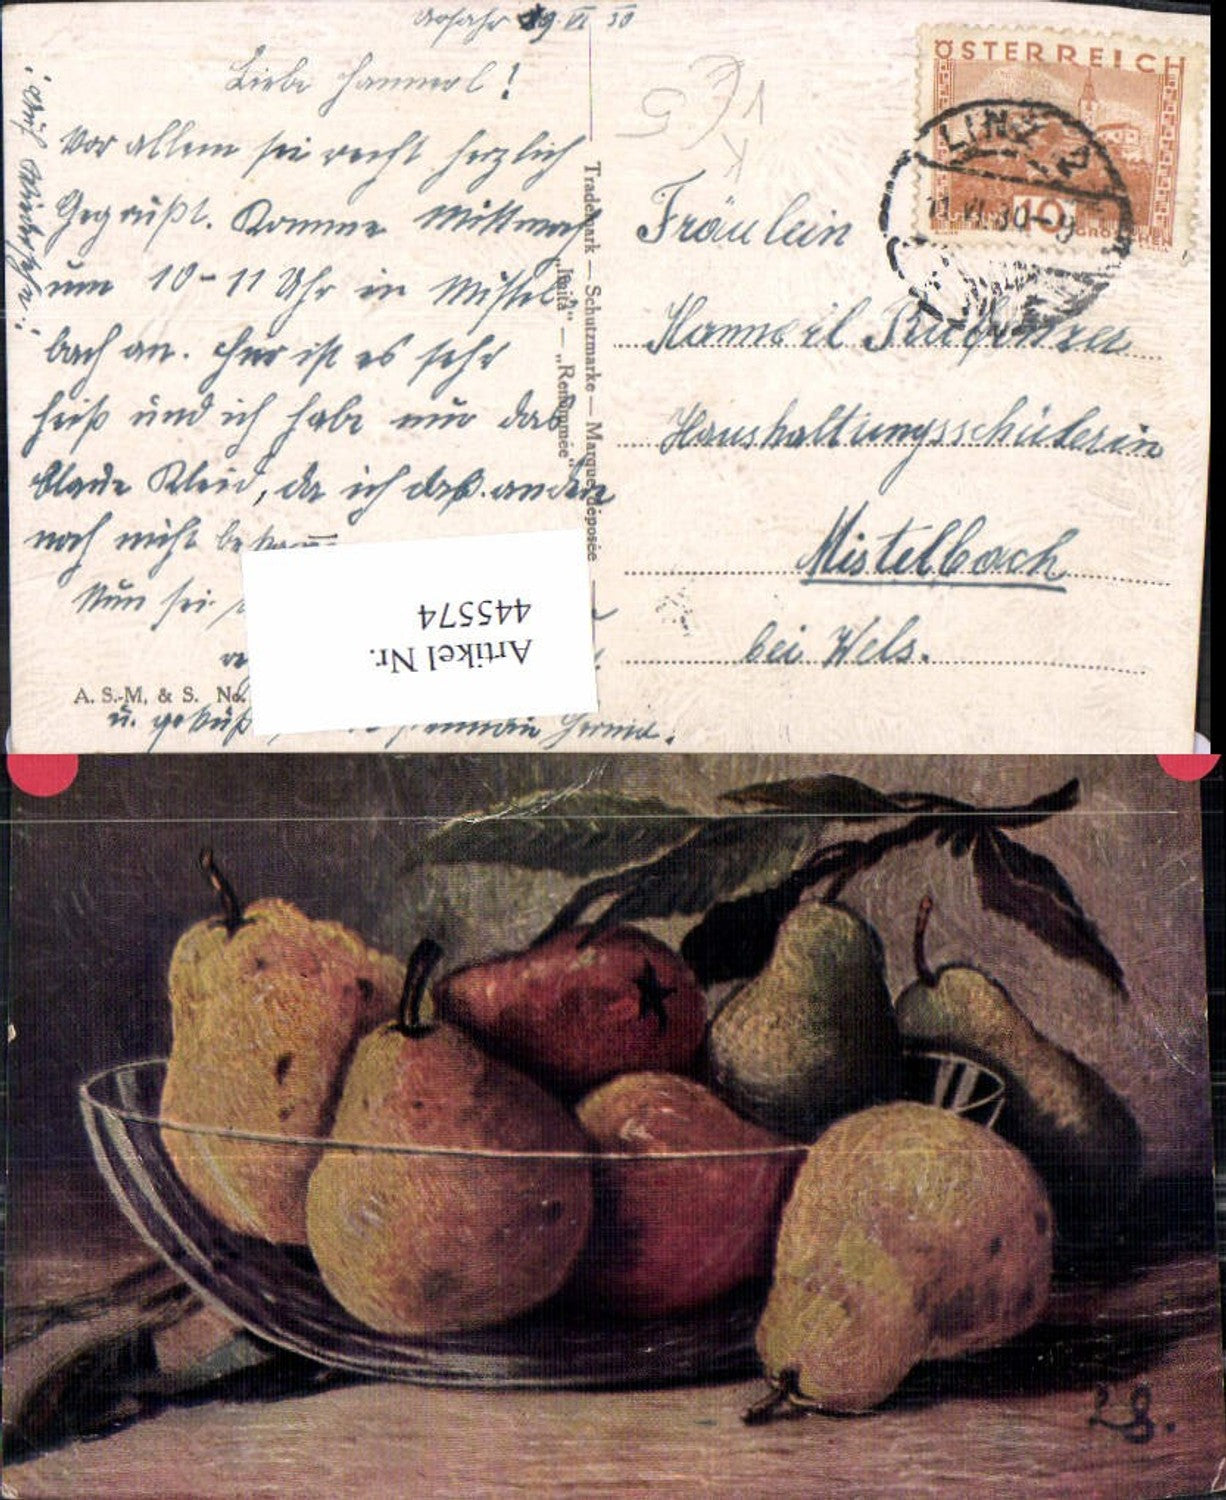 9. VI 30
Liebe Hannerl!
Vor allem sei recht herzlich
Gegrüßt. Komme Mittwoch
um 10-11 Uhr in Mistel-
bach an. Hier ist es sehr
heiß und ich habe nur das
blaue Kleid, da ich das andere
noch nicht
Nun sei
u.
A. S.-M. & S. No.
Trademark — Schutzmarke — Marque déposée —
„Imita" — „Renommée"
ÖSTERREICH
10
GROSCHEN
LINZ 2
11.VI.30-9
Fräulein
Hannerl
Haushaltungsschülerin
Mistelbach
bei Wels.
Artikel Nr.
445574